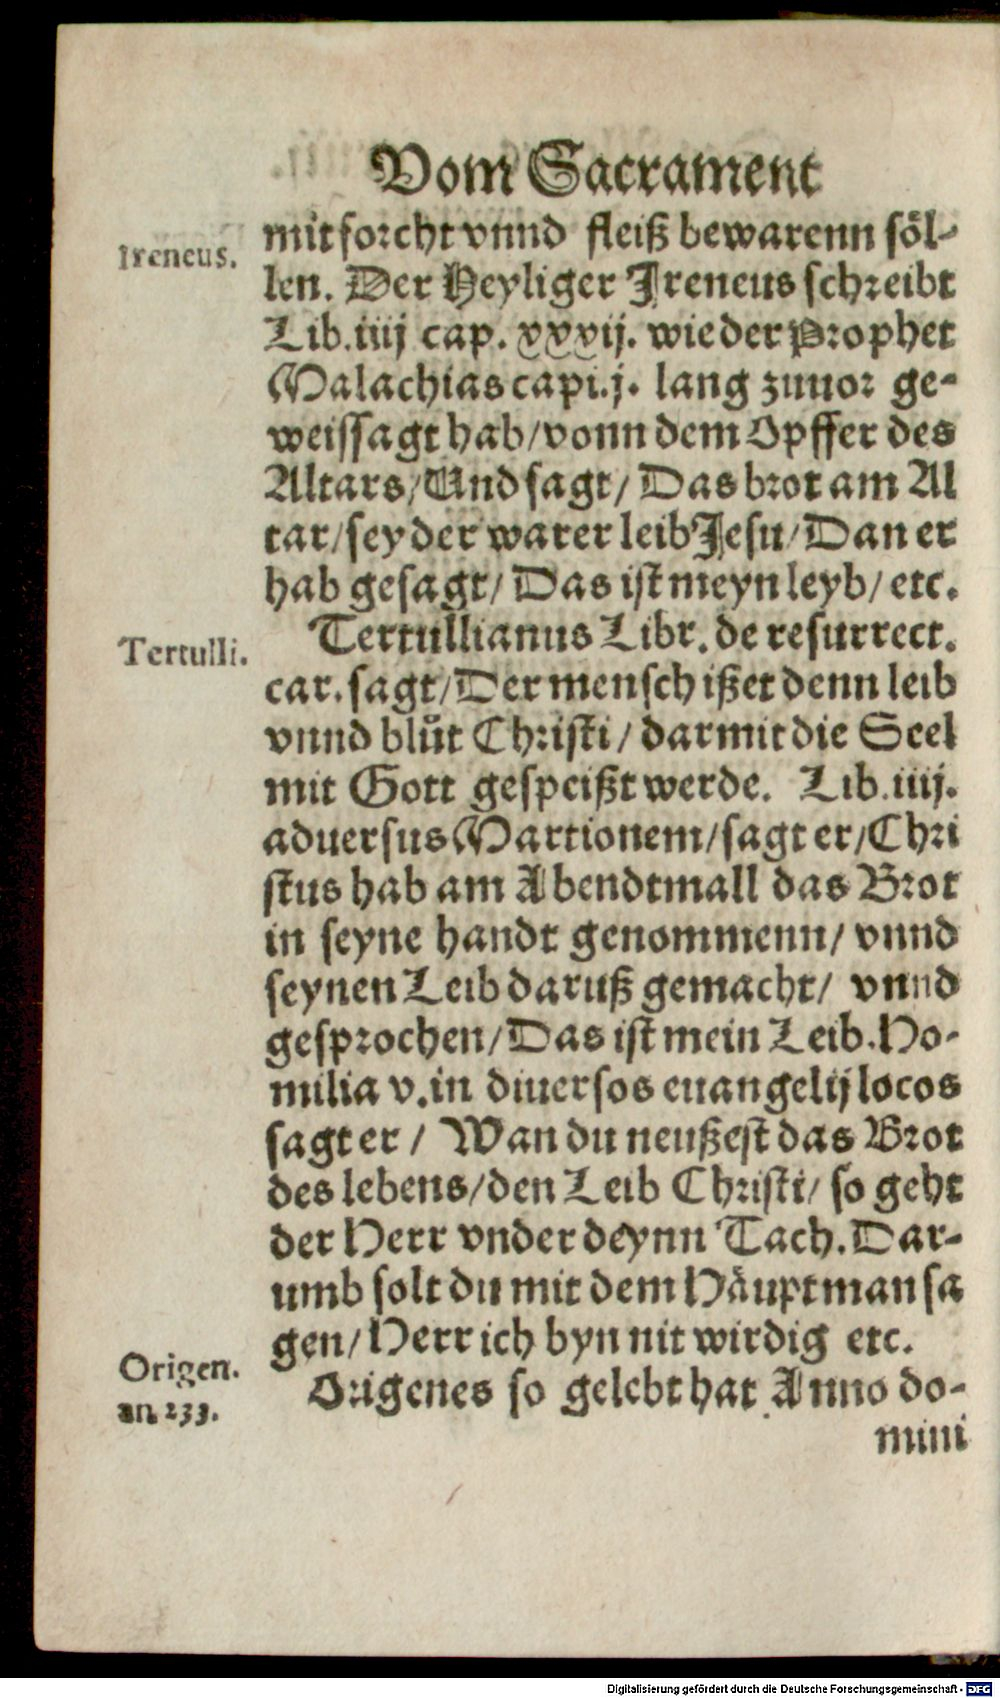 Vom Sacrament
Ireneus.
mit forcht vnnd fleiß bewarenn söl-
len. Der Heyliger Jreneus schreibt
Lib.iiij cap. xxxij. wie der Prophet
Malachias capi.j. lang zuuor ge-
weissagt hab/vonn dem Opffer des
Altars/Und sagt/ Das brot am Al
tar/sey der warer leib Jesu/Dan er
hab gesagt/ Das ist meyn leyb/ etc.
Tertulli.
Tertullianus Libr. de resurrect.
car. sagt/Der mensch ißet denn leib
vnnd blůt Christi/ darmit die Seel
mit Gott gespeißt werde. Lib.iiij.
aduersus Martionem/sagt er/Chri
stus hab am Abendtmall das Brot
in seyne handt genommenn/ vnnd
seynen Leib daruß gemacht/ vnnd
gesprochen/Das ist mein Leib.Ho-
milia v.in diuersos euangelij locos
sagt er/ Wan du neußest das Brot
des lebens/den Leib Christi/ so geht
der Herr vnder deynn Tach. Dar-
umb solt du mit dem Häuptman sa
gen/Herr ich byn nit wirdig etc.
Origen.
an. 233.
Origenes so gelebt hat Anno do-
mini
Digitalisierung gefördert durch die Deutsche Forschungsgemeinschaft - DFG